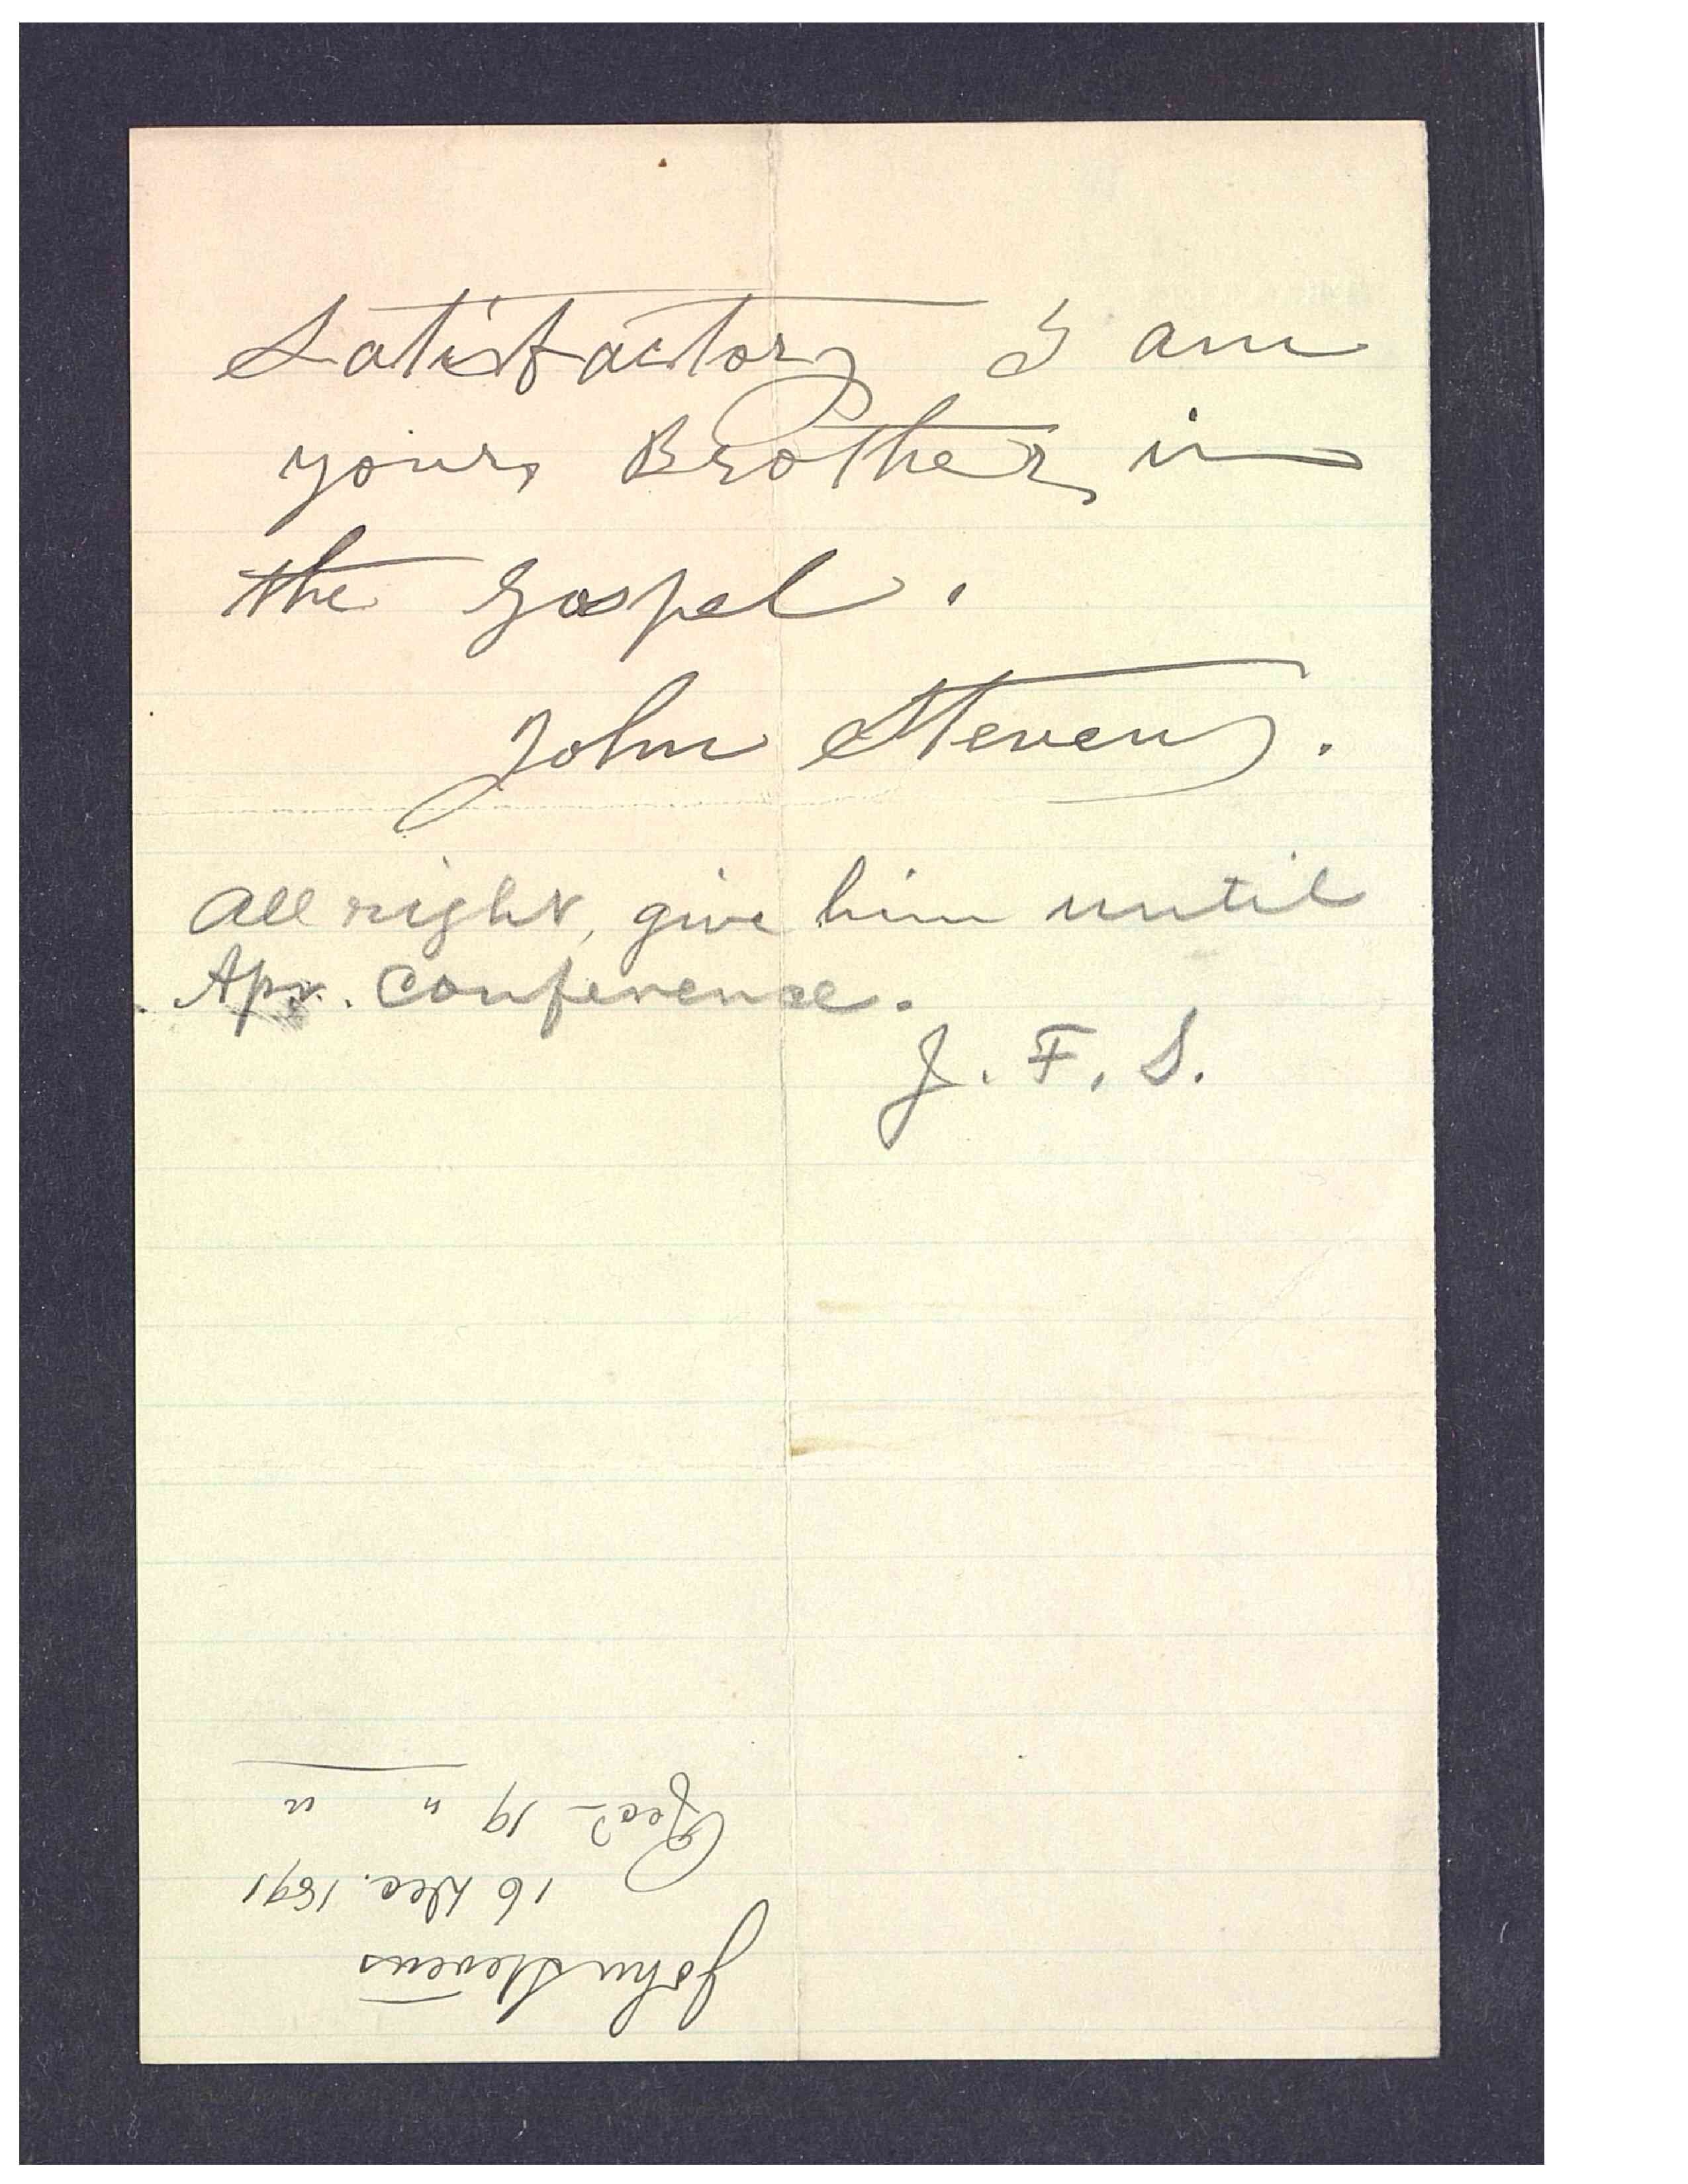 Satisfactory I am
your Brother in
the Gospel.
John Stevens.
All right, give him until
Apr. Conference.
J. F. S.
John Stevens
16 Dec. 1891
Recd 19 " "